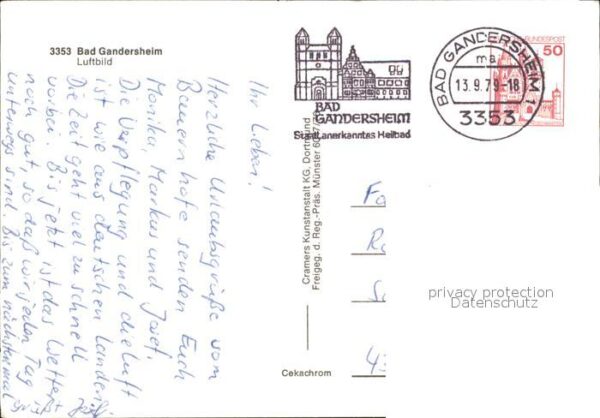 3353 Bad Gandersheim
Luftbild
Ihr Lieben!
Herzliche Urlaubsgrüße vom
Bauernhofe senden Euch
Monika, Markus und Josef.
Die Verpflegung und die Luft
ist wie aus deutschen Landen.
Die Zeit geht viel zu schnell
vorbei. Bis jetzt ist das Wetter
noch gut, so daß wir jeden Tag
unterwegs sind. Bis zum nächstenmal
BAD
GANDERSHEIM
Staatl. anerkanntes Heilbad
BAD GANDERSHEIM 1
ma
13.9.79-18
3353
BUNDESPOST
50
Cramers Kunstanstalt KG, Dortmund
Freigeg. d. Reg.-Präs. Münster
Cekachrom
Fa
Ra
43
privacy protection
Datenschutz